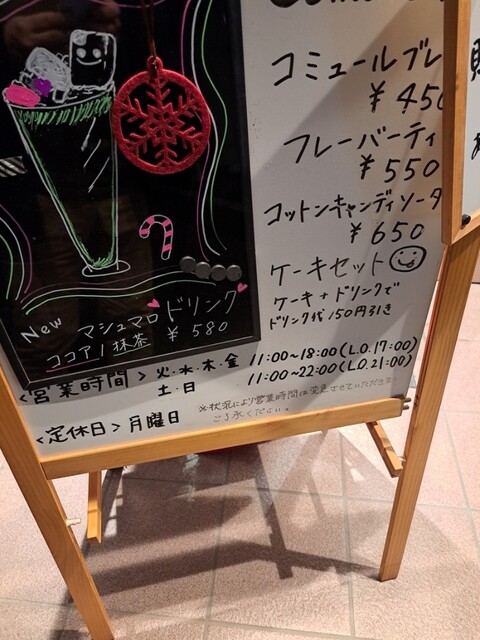 コミュールブレ
¥450
フレーバーティ
¥550
コットンキャンディソータ
¥650
ケーキセット
ケーキ+ドリンクで
ドリンク代150円引き
New
マシュマロドリンク
ココア/抹茶 ¥580
<営業時間> 火・水・木・金 11:00~18:00(L.O.17:00)
土・日 11:00~22:00(L.O.21:00)
※状況により営業時間は変更させていただきます
ご了承ください。
<定休日> 月曜日